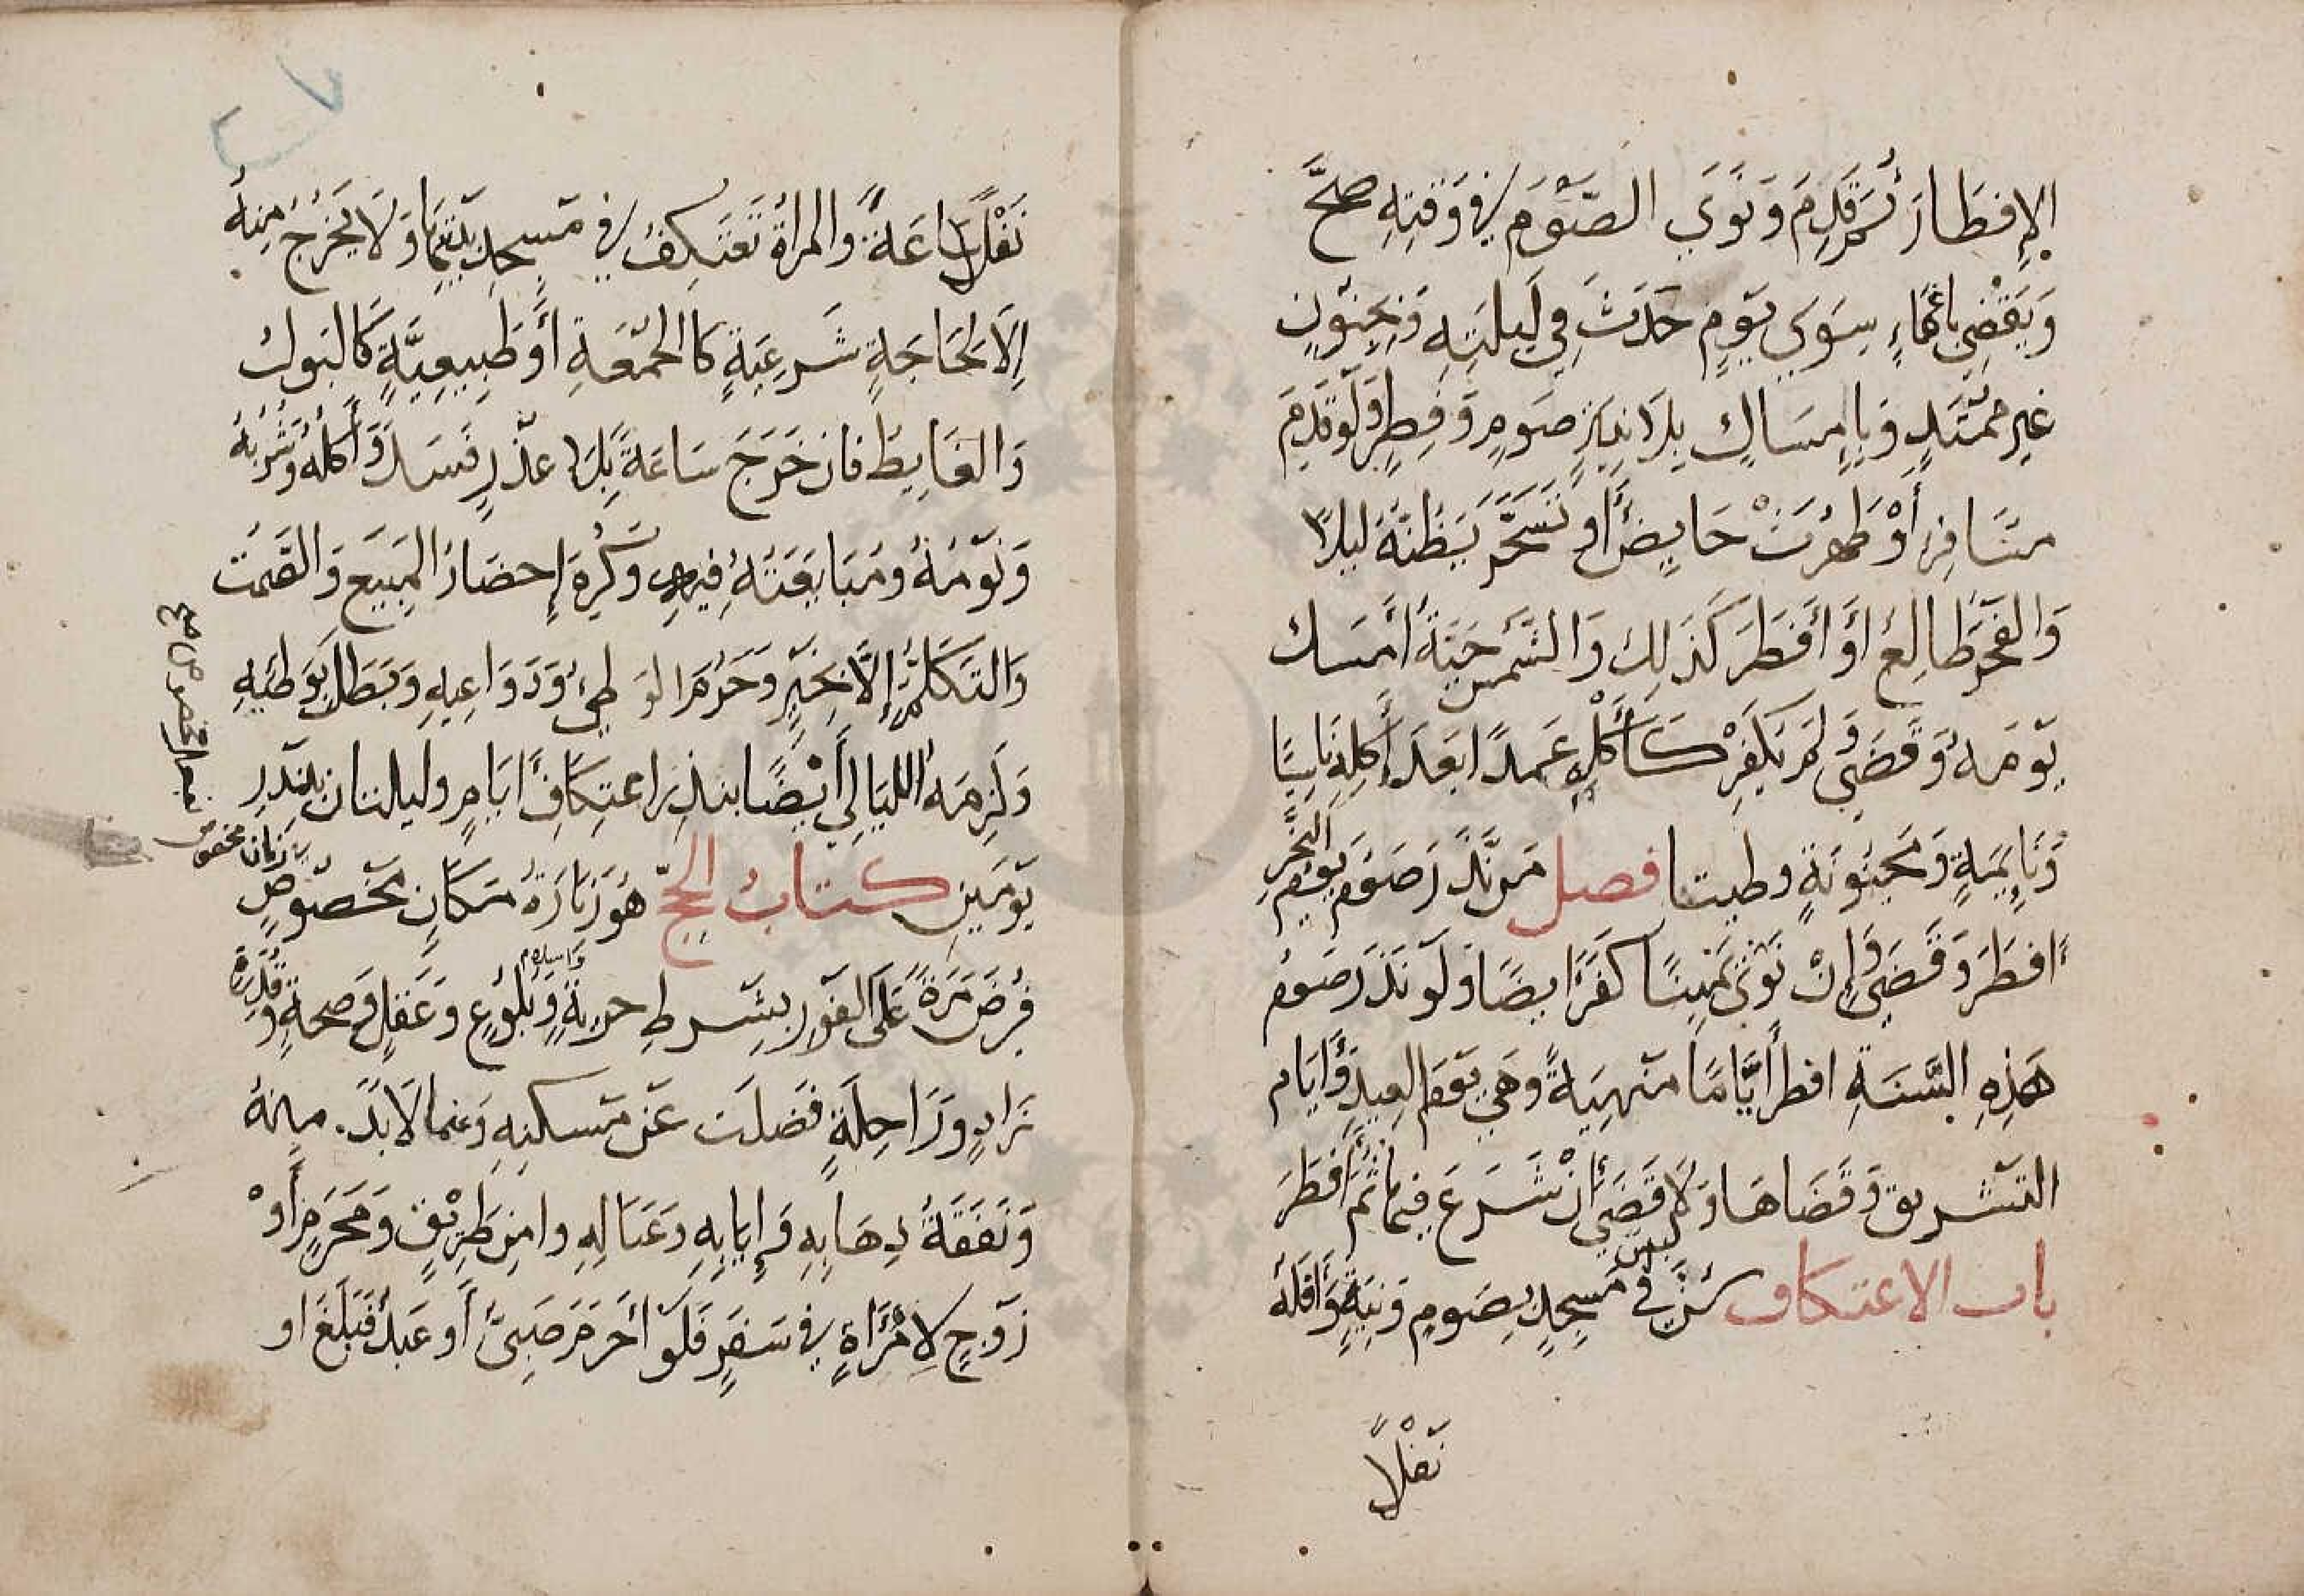 الإفطَارَ ثُمَّ قَدِمَ وَنَوَى الصَّوْمَ في وَقتِهِ صَحَّ
وَيَقْضِي باغمَاءٍ سِوَى يَومٍ حَدَثَ فِي لَيلَتِهِ وَبجنُونٍ
غيرِ ممْتَدٍ وَبإمسَاكٍ بلا نيةِ صَومٍ وَفِطرٍ وَلَوْ قَدِمَ
مسَافِرٌ أَوْ طَهُرَتْ حَايِضٌ أَو تَسَحَّرَ يَظُنَّهُ ليلاً
وَالفَجْرُ طَالِعٌ أوَ أَفطَرَ كَذَلِكَ وَالشَّمسُ حَيَّةٌ أَمْسَك
يَومَهُ وَقَضَى وَلم يكَفِرْ كَأَكْلِهِ عَمدًا بَعدَ أَكلِهِ نَاسِيًا
وَنَايِمَةٍ وَمَجنونَةٍ وطيتا فصل مَن نَذَرَ صَومَ يَومِ النَّحْرِ
افطَرَ وَقَضَى وَإِنْ نَوَى يَمِينًا كَفَّرَ ايضًا وَلَو نَذَرَ صَومَ
هَذِهِ السَّنَةِ افطَرَ أَيَّامًا منهِيَةً وَهِيَ يَومَا العِيدِ وَأَيَّام
التشريق وَقَضَاهَا وَلَا قَضَى إِنْ شَرَعَ فيها ثُمَّ أَفطَرَ
باب الاعتكاف سُنَّ لبث في مَسجِدٍ بِصَومٍ وَنِيَةٍ وَأَقَلُّهُ
نَفْلاً
نَفْلاً سَاعَةٌ والمرأة تَعْتَكِفُ في مَسجِدِ بَيتهَا وَلَا يَخْرُجُ مِنهُ
إلَّا لِحَاجَةٍ شَرعِيَةٍ كالجُمعَةِ أَوْ طَبِيعِيَّةٍ كَالبَولِ
وَالغَايِطِ فان خَرَجَ سَاعَةً بِلا عذرٍ فَسَدَ وَأَكلُهُ وَشُرْبُهُ
وَنَوْمُهُ وَمُبَايعَتُهُ فِيهِ وَكُرِهَ إِحضَارُ المَبِيعِ وَالصَّمْت
وَالتَكَلُّمُ إِلاَّ بِخَيْرٍ وَحَرُمَ الوَطىُ وَدَوَاعِيهِ وَبَطَلَ بِوَطئِهِ
وَلَزِمَهُ اللَيَالِي أَيْضًا بنذِرِ اعتِكَافِ أَيَامٍ وليلتان بنَذْرِ
يَومَينِ كتابُ الحجّ هُو زيَارَةُ مَكَانٍ مخْصُوصٍ
في زمان مخصوص
فُرِضَ مَرَةً عَلَى الفَوْر بِشَرطِ حريةٍ وَبُلُوغٍ وَعَقلٍ وَصحةٍ وَقُدْرَةِ
واسلام
زادٍ وَرَاحِلَةٍ فَضلَت عَن مَسكَنِهِ وَعما لَا بدَّ منهُ
وَنَفَقَةُ ذِهَابِهِ وَإِيَابِهِ وَعَيَالِهِ وامنِ طَرِيْقٍ وَمَحْرَمٍ أَوْ
زَوْجٍ لاِمْرَأةٍ في سَفَرٍ فَلَوْ أَحرَمَ صَبِىٌّ أَو عَبدٌ فَبَلَغَ او